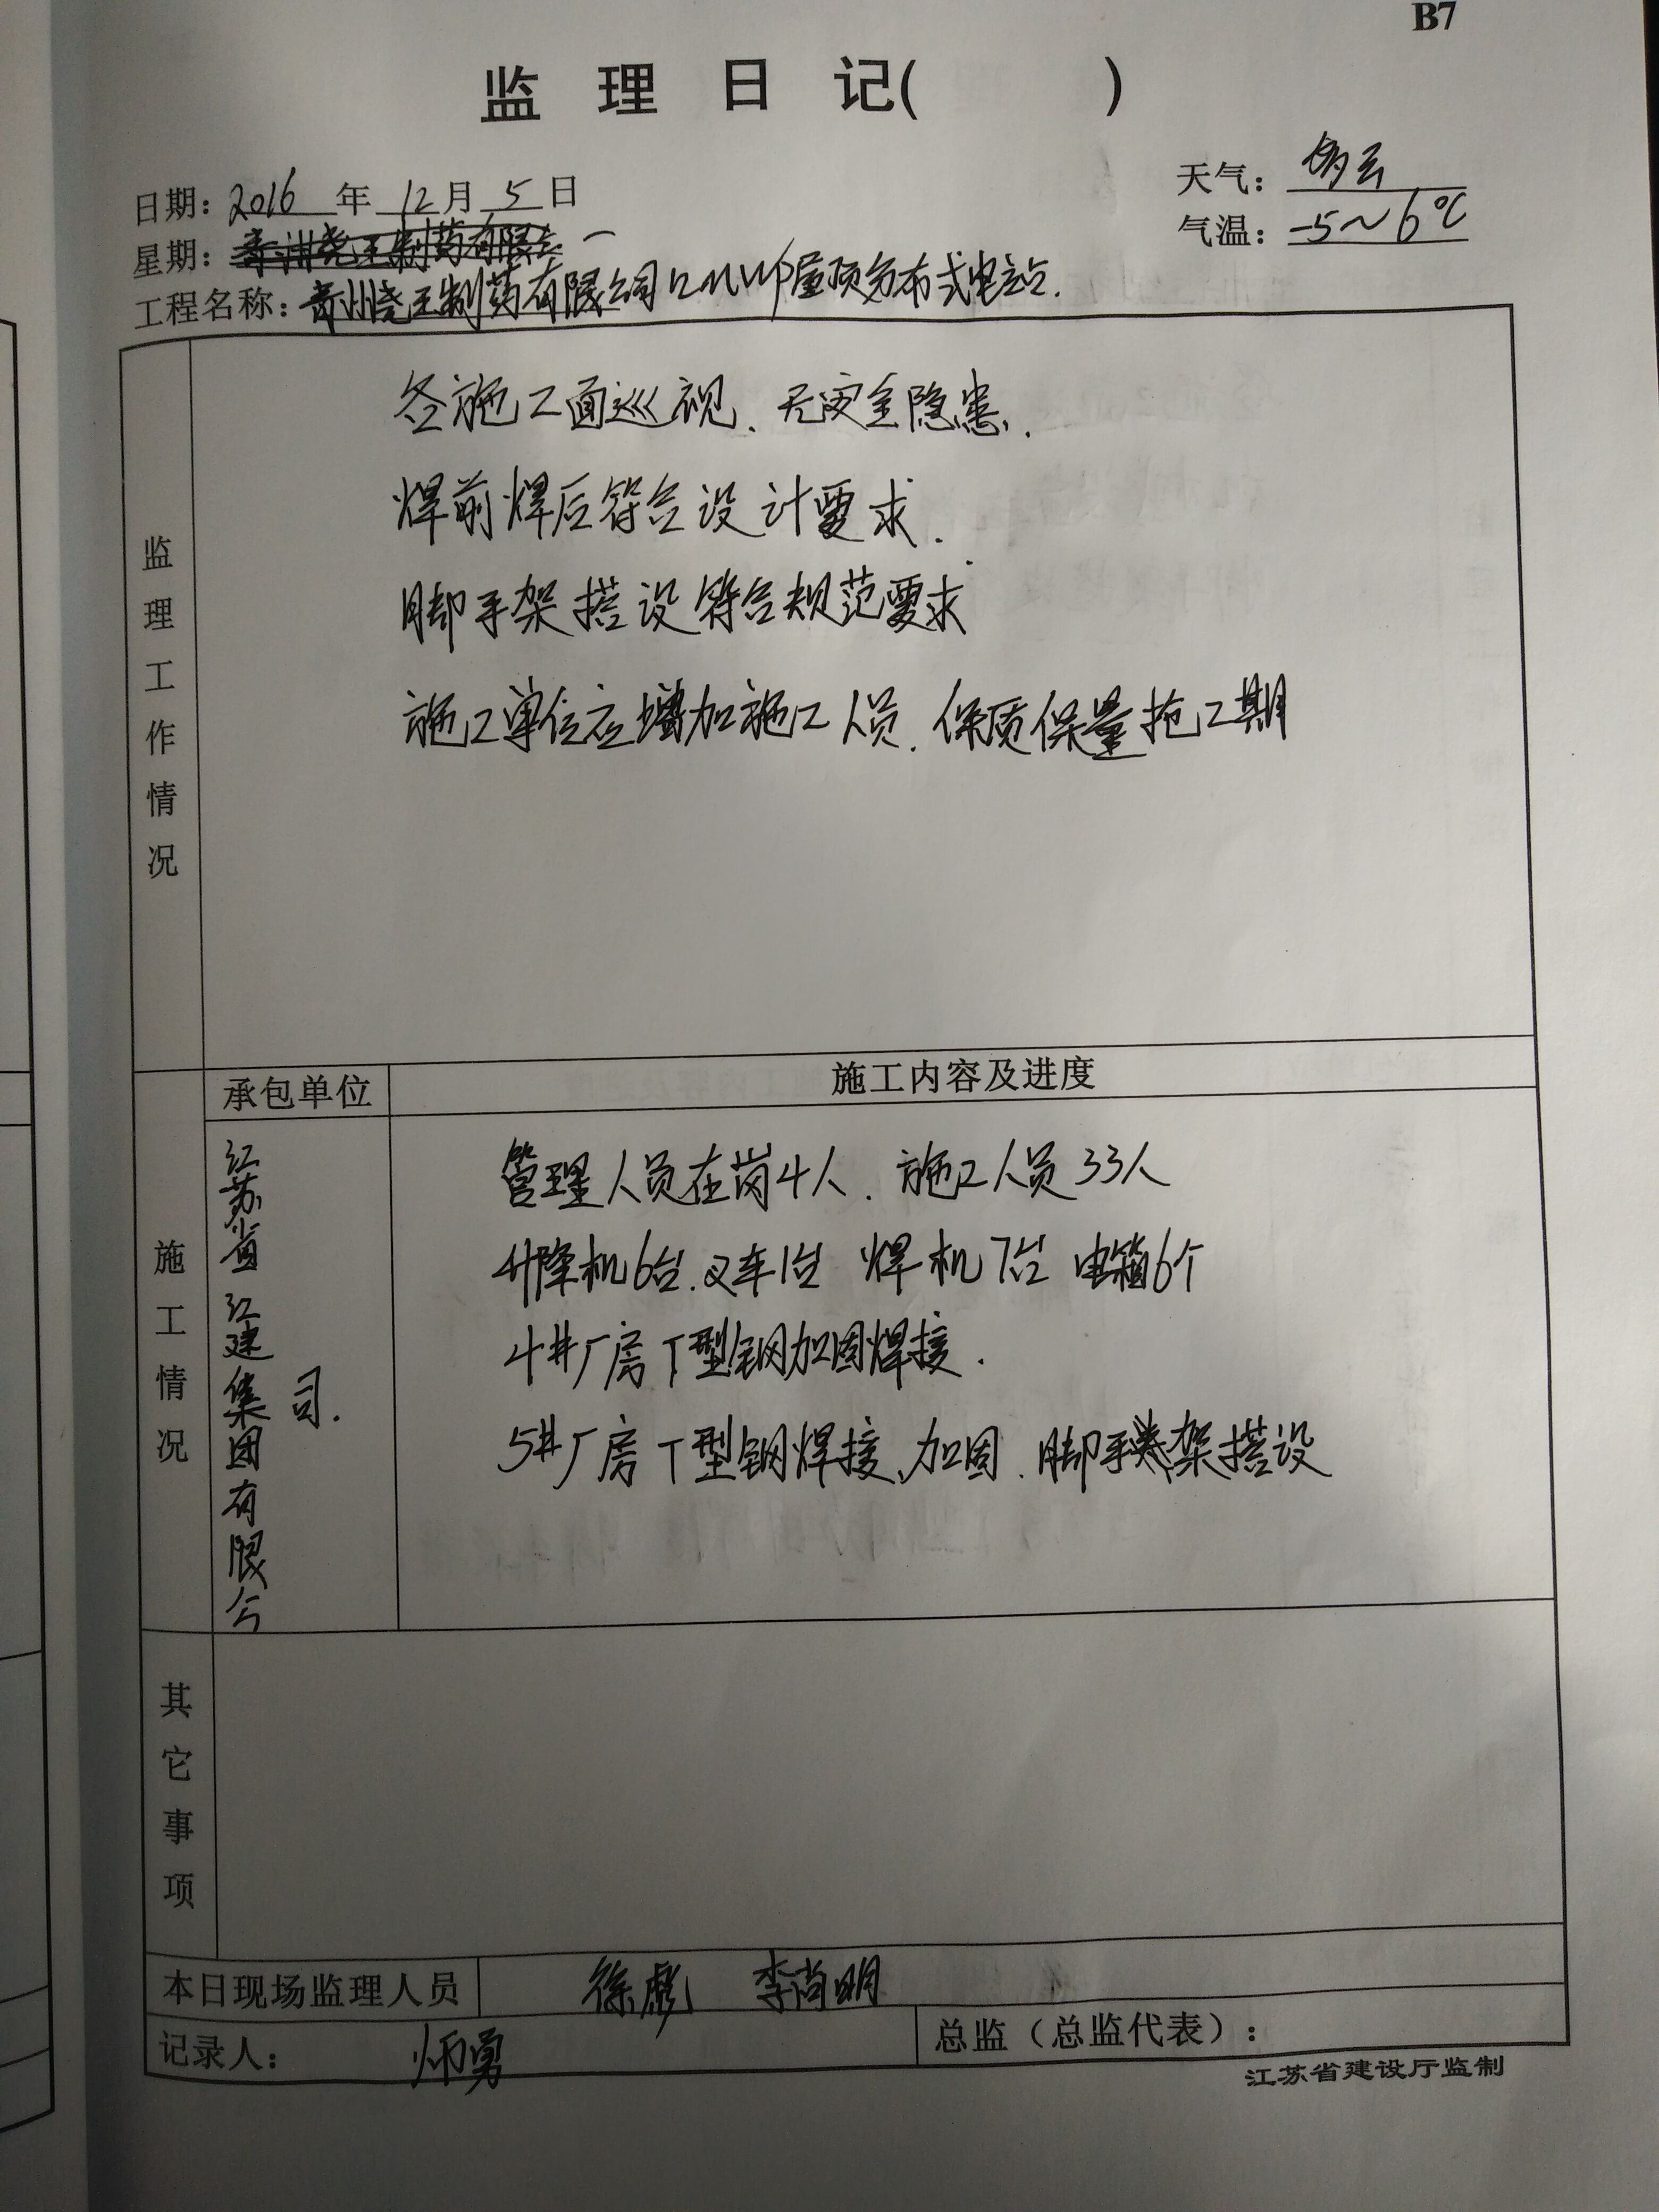 B7
监理日记( )
日期: 2016 年 12 月 5 日
天气: 多云
星期: 一
气温: -5~6℃
工程名称: 青州尧王制药有限公司 屋顶分布式电站.
监理工作情况
各施工面巡视、无安全隐患.
焊前焊后符合设计要求.
脚手架搭设符合规范要求
施工单位应增加施工人员、保质保量抢工期
施工情况
承包单位
施工内容及进度
江苏省江建集团有限公司.
管理人员在岗4人、施工人员33人
升降机6台、叉车1台 焊机7台 电箱6个
4#厂房T型钢加固焊接.
5#厂房T型钢焊接、加固、脚手架搭设
其它事项
本日现场监理人员 徐彪 李尚明
记录人:
总监(总监代表):
江苏省建设厅监制